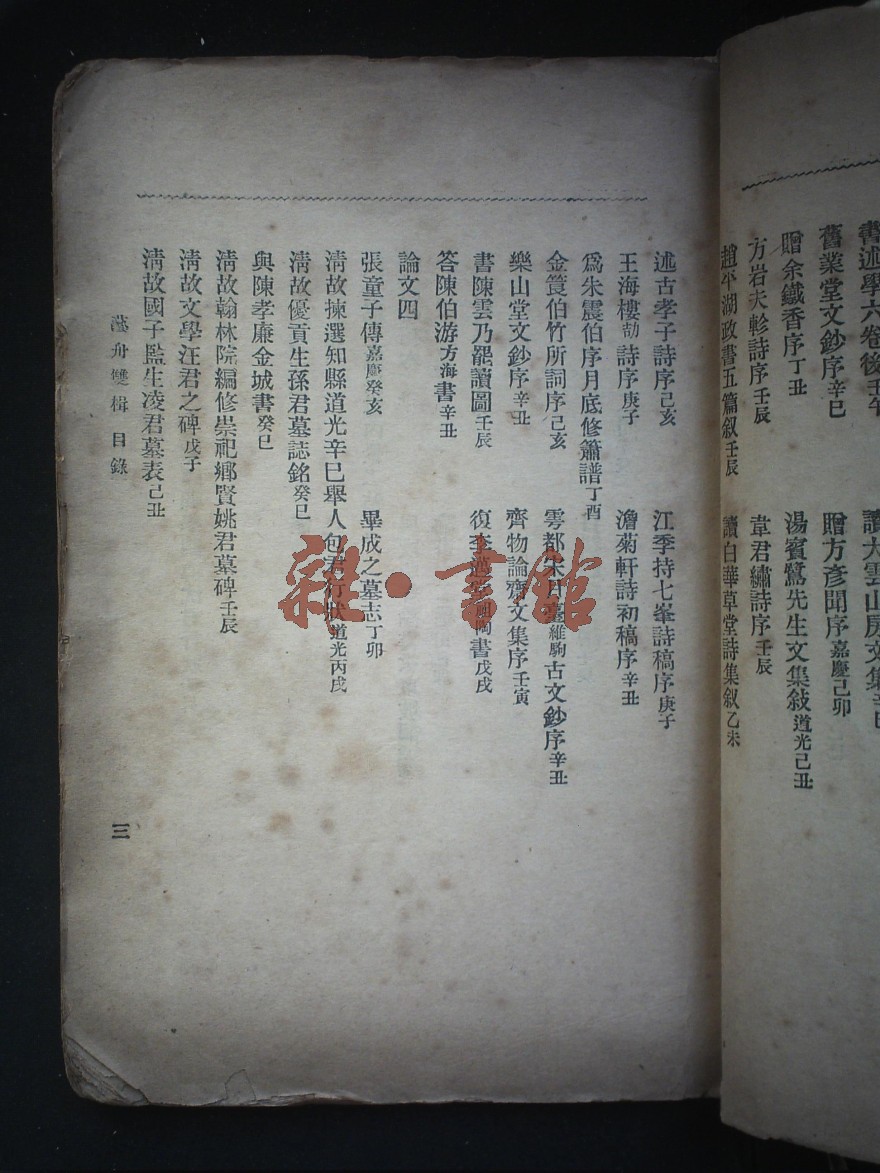 書述學六卷後壬午
讀大雲山房文集辛巳
舊業堂文鈔序辛巳
贈方彥聞序嘉慶己卯
贈余鐵香序丁丑
湯賓鷺先生文集敍道光己丑
方岩夫軫詩序壬辰
韋君繡詩序壬辰
趙平湖政書五篇叙壬辰
讀白華草堂詩集叙乙未
述古孝子詩序己亥
江季持七峯詩稿序庚子
王海樓劼詩序庚子
澹菊軒詩初稿序辛丑
爲朱震伯序月底修簫譜丁酉
金筤伯竹所詞序己亥
雩都宋月臺維駒古文鈔序辛丑
樂山堂文鈔序辛丑
齊物論齋文集序壬寅
書陳雲乃罷讀圖壬辰
復李邁堂祖陶書戊戌
答陳伯游方海書辛丑
論文四
張童子傳嘉慶癸亥
畢成之墓志丁卯
淸故揀選知縣道光辛巳舉人包君行狀道光丙戌
淸故優貢生孫君墓誌銘癸巳
與陳孝廉金城書癸巳
淸故翰林院編修崇祀鄉賢姚君墓碑壬辰
淸故文學汪君之碑戊子
淸故國子監生凌君墓表己丑
藝舟雙楫 目錄
三
雜·書館